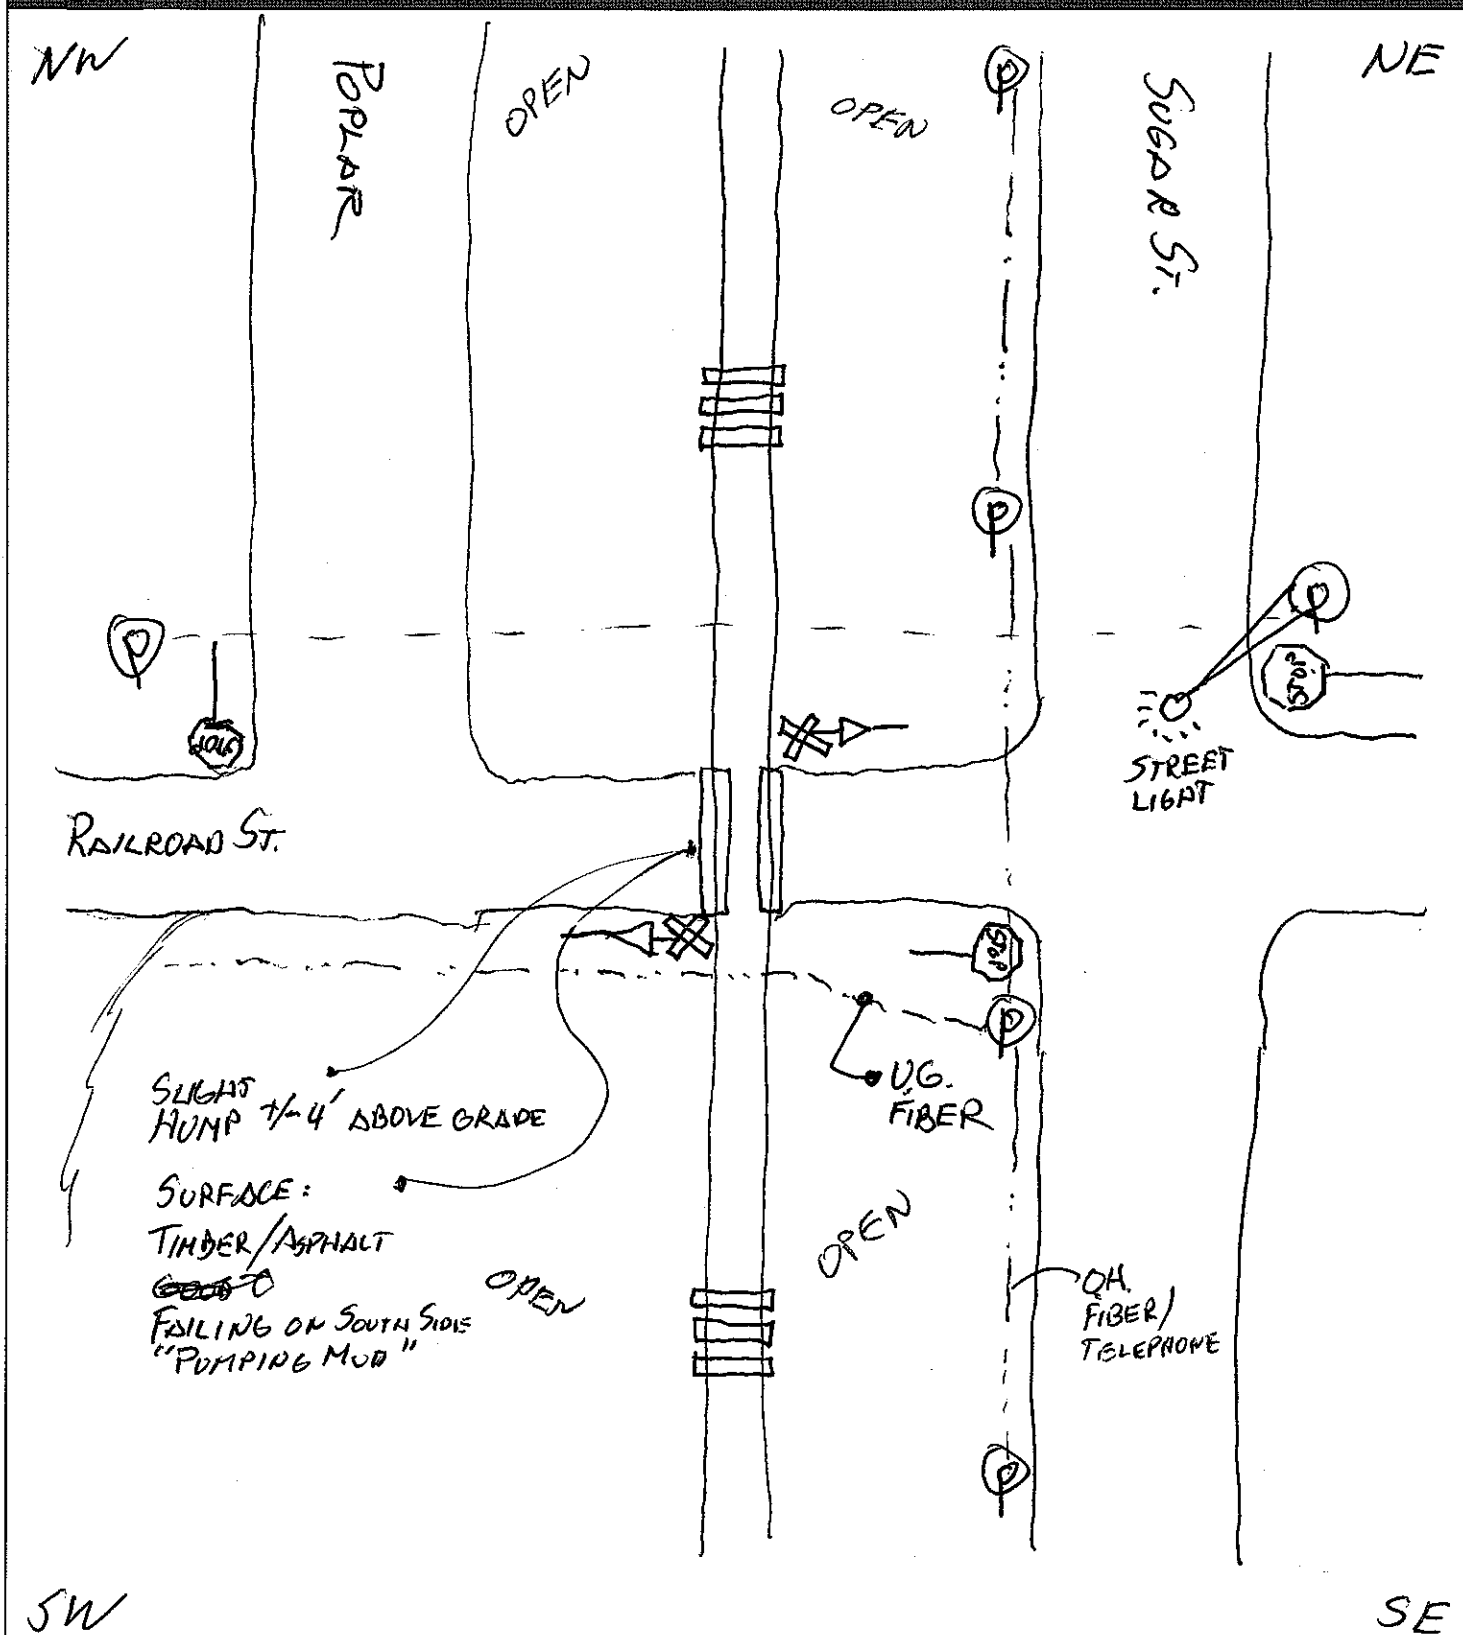 NW
NE
POPLAR
OPEN
OPEN
SUGAR ST.
STOP
STOP
STREET
LIGHT
RAILROAD ST.
STOP
U.G.
FIBER
SLIGHT
HUMP +/- 4' ABOVE GRADE
SURFACE:
TIMBER/ASPHALT
FAILING ON SOUTH SIDE
"PUMPING MUD"
OPEN
OPEN
O.H.
FIBER/
TELEPHONE
SW
SE